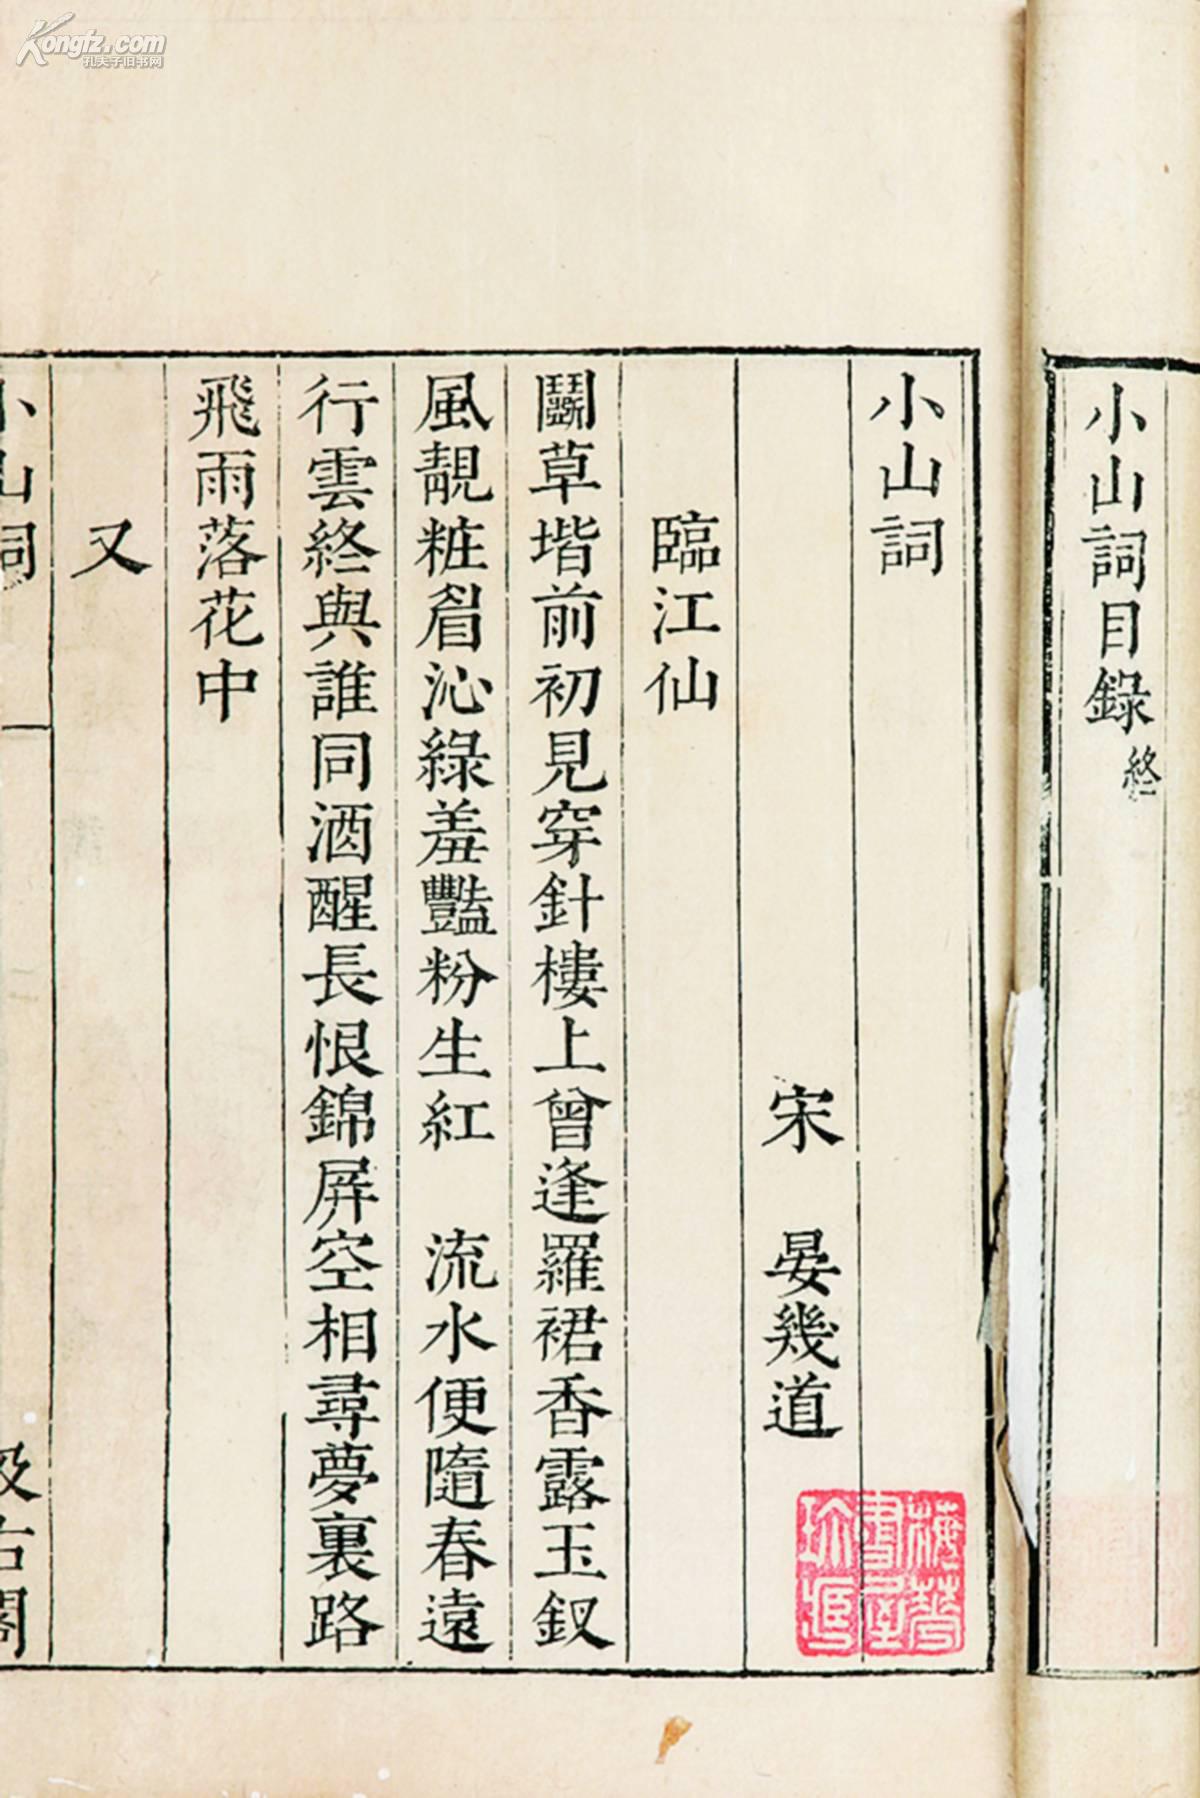 Kongfz.com
孔夫子旧书网
小山詞目錄終
小山詞
宋 晏幾道
臨江仙
鬭草堦前初見穿針樓上曾逢羅裙香露玉釵
風靚粧眉沁綠羞豔粉生紅 流水便隨春遠
行雲終與誰同酒醒長恨錦屏空相尋夢裏路
飛雨落花中
又
小山詞 一 汲古閣